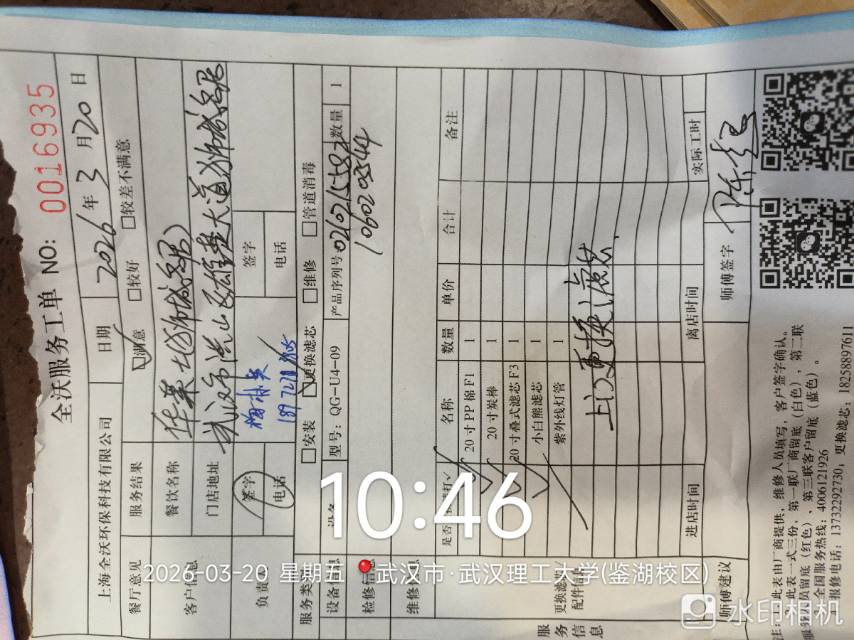 全沃服务工单 NO: 0016935
上海全沃环保科技有限公司 日期 2026 年 3 月 20 日
餐厅意见 服务结果 ☑满意 □较好 □较差不满意
客户信息 餐饮名称
门店地址 武汉市洪山区雄楚大道
负责 签字 签字
电话 电话
服务类 □安装 ☑更换滤芯 □维修 □管道消毒
设备信息 型号: QG-U4-09 产品序列号 数量 1
检修信
维修
是否 名称 数量 单价 合计 备注
20 寸 PP 棉 F1 1
20 寸炭棒 1
20 寸叠式滤芯 F3 1
小白熊滤芯 1
紫外线灯管 1
更换
配件
上门更换滤芯.
服务信息
进店时间 离店时间 实际工时
师傅建议 师傅签字
注: 此表由厂商提供, 维修人员填写, 客户签字确认。
此表一式三份, 第一联厂商留底 (白色), 第二联
员留底 (红色)、第三联客户留底 (蓝色)。
全国服务热线: 4006121926
报修电话: 13732292730, 更换滤芯: 18258897611
10:46
2026-03-20 星期五 武汉市·武汉理工大学(鉴湖校区)
水印相机